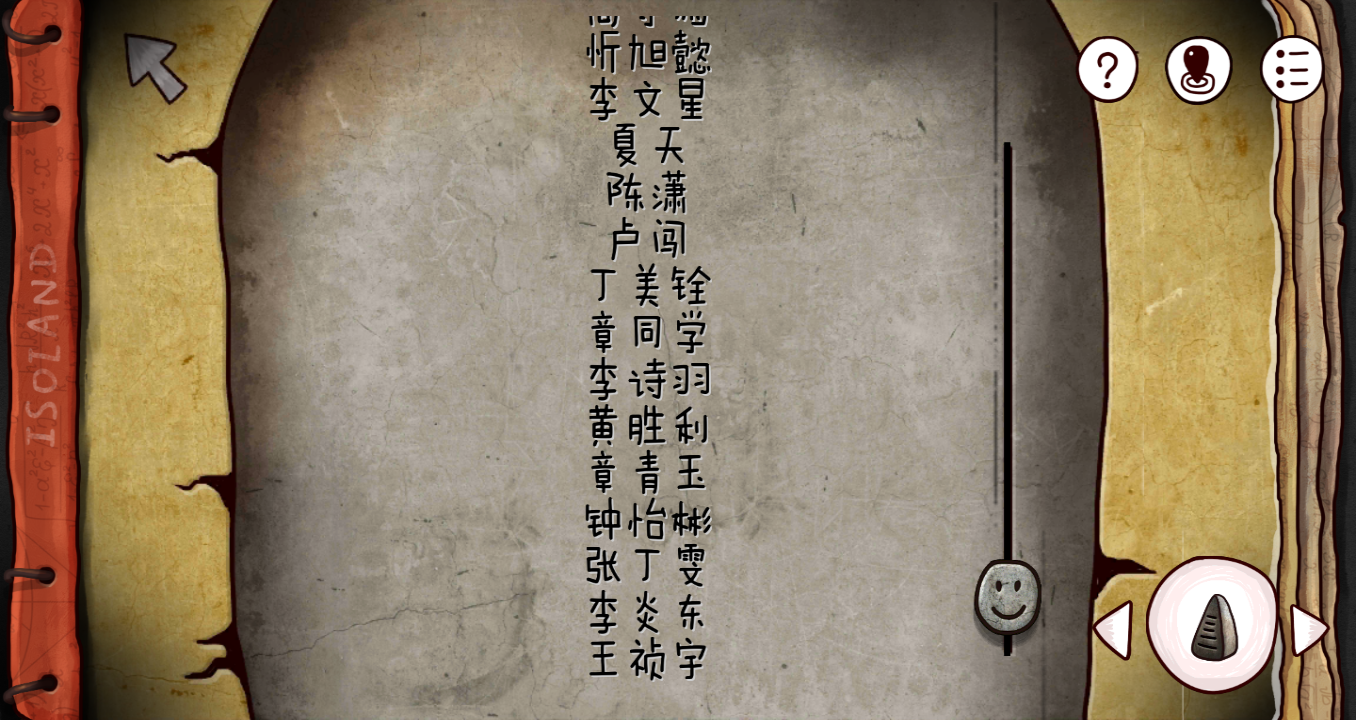 忻旭懿
李文星
夏天
陈潇
卢闯
丁美铨
章同学
李诗羽
黄胜利
章青玉
钟怡彬
张丁雯
李炎东
王祯宇
ISOLAND
?